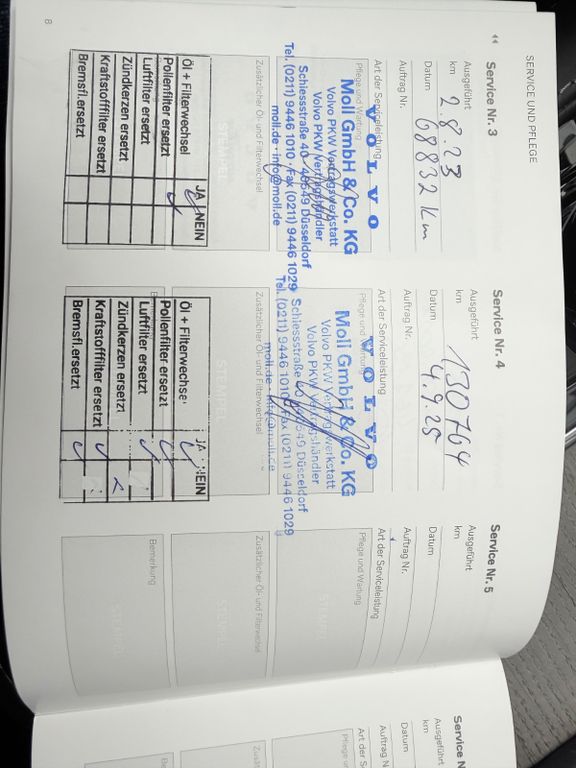 SERVICE UND PFLEGE
◄◄
Service Nr. 3
Ausgeführt
km
2.8.23
Datum
68832 km
Auftrag Nr.
Art der Serviceleistung
Pflege und Wartung
VOLVO
Moll GmbH & Co. KG
Volvo PKW Vertragswerkstatt
Volvo PKW Vertragshändler
Schiessstraße 40 · 40549 Düsseldorf
Tel. (0211) 9446 1010 · Fax (0211) 9446 1029
moll.de · info@moll.de
Zusätzlicher Öl- und Filterwechsel
STEMPEL
JA NEIN
Öl + Filterwechsel
Pollenfilter ersetzt
Luftfilter ersetzt
Zündkerzen ersetzt
Kraftstofffilter ersetzt
Bremsfl.ersetzt
Service Nr. 4
Ausgeführt
km
130764
Datum
4.9.25
Auftrag Nr.
Art der Serviceleistung
Pflege und Wartung
VOLVO
Moll GmbH & Co. KG
Volvo PKW Vertragswerkstatt
Volvo PKW Vertragshändler
Schiessstraße 40 · 40549 Düsseldorf
Tel. (0211) 9446 1010 · Fax (0211) 9446 1029
moll.de · info@moll.de
Zusätzlicher Öl- und Filterwechsel
STEMPEL
JA NEIN
Öl + Filterwechsel
Pollenfilter ersetzt
Luftfilter ersetzt
Zündkerzen ersetzt
Kraftstofffilter ersetzt
Bremsfl.ersetzt
Service Nr. 5
Ausgeführt
km
Datum
Auftrag Nr.
Art der Serviceleistung
Pflege und Wartung
STEMPEL
Zusätzlicher Öl- und Filterwechsel
STEMPEL
Bemerkung
8
Service
Ausgeführt
km
Datum
Auftrag N
Art der S
Pflege u
Zusä
Be